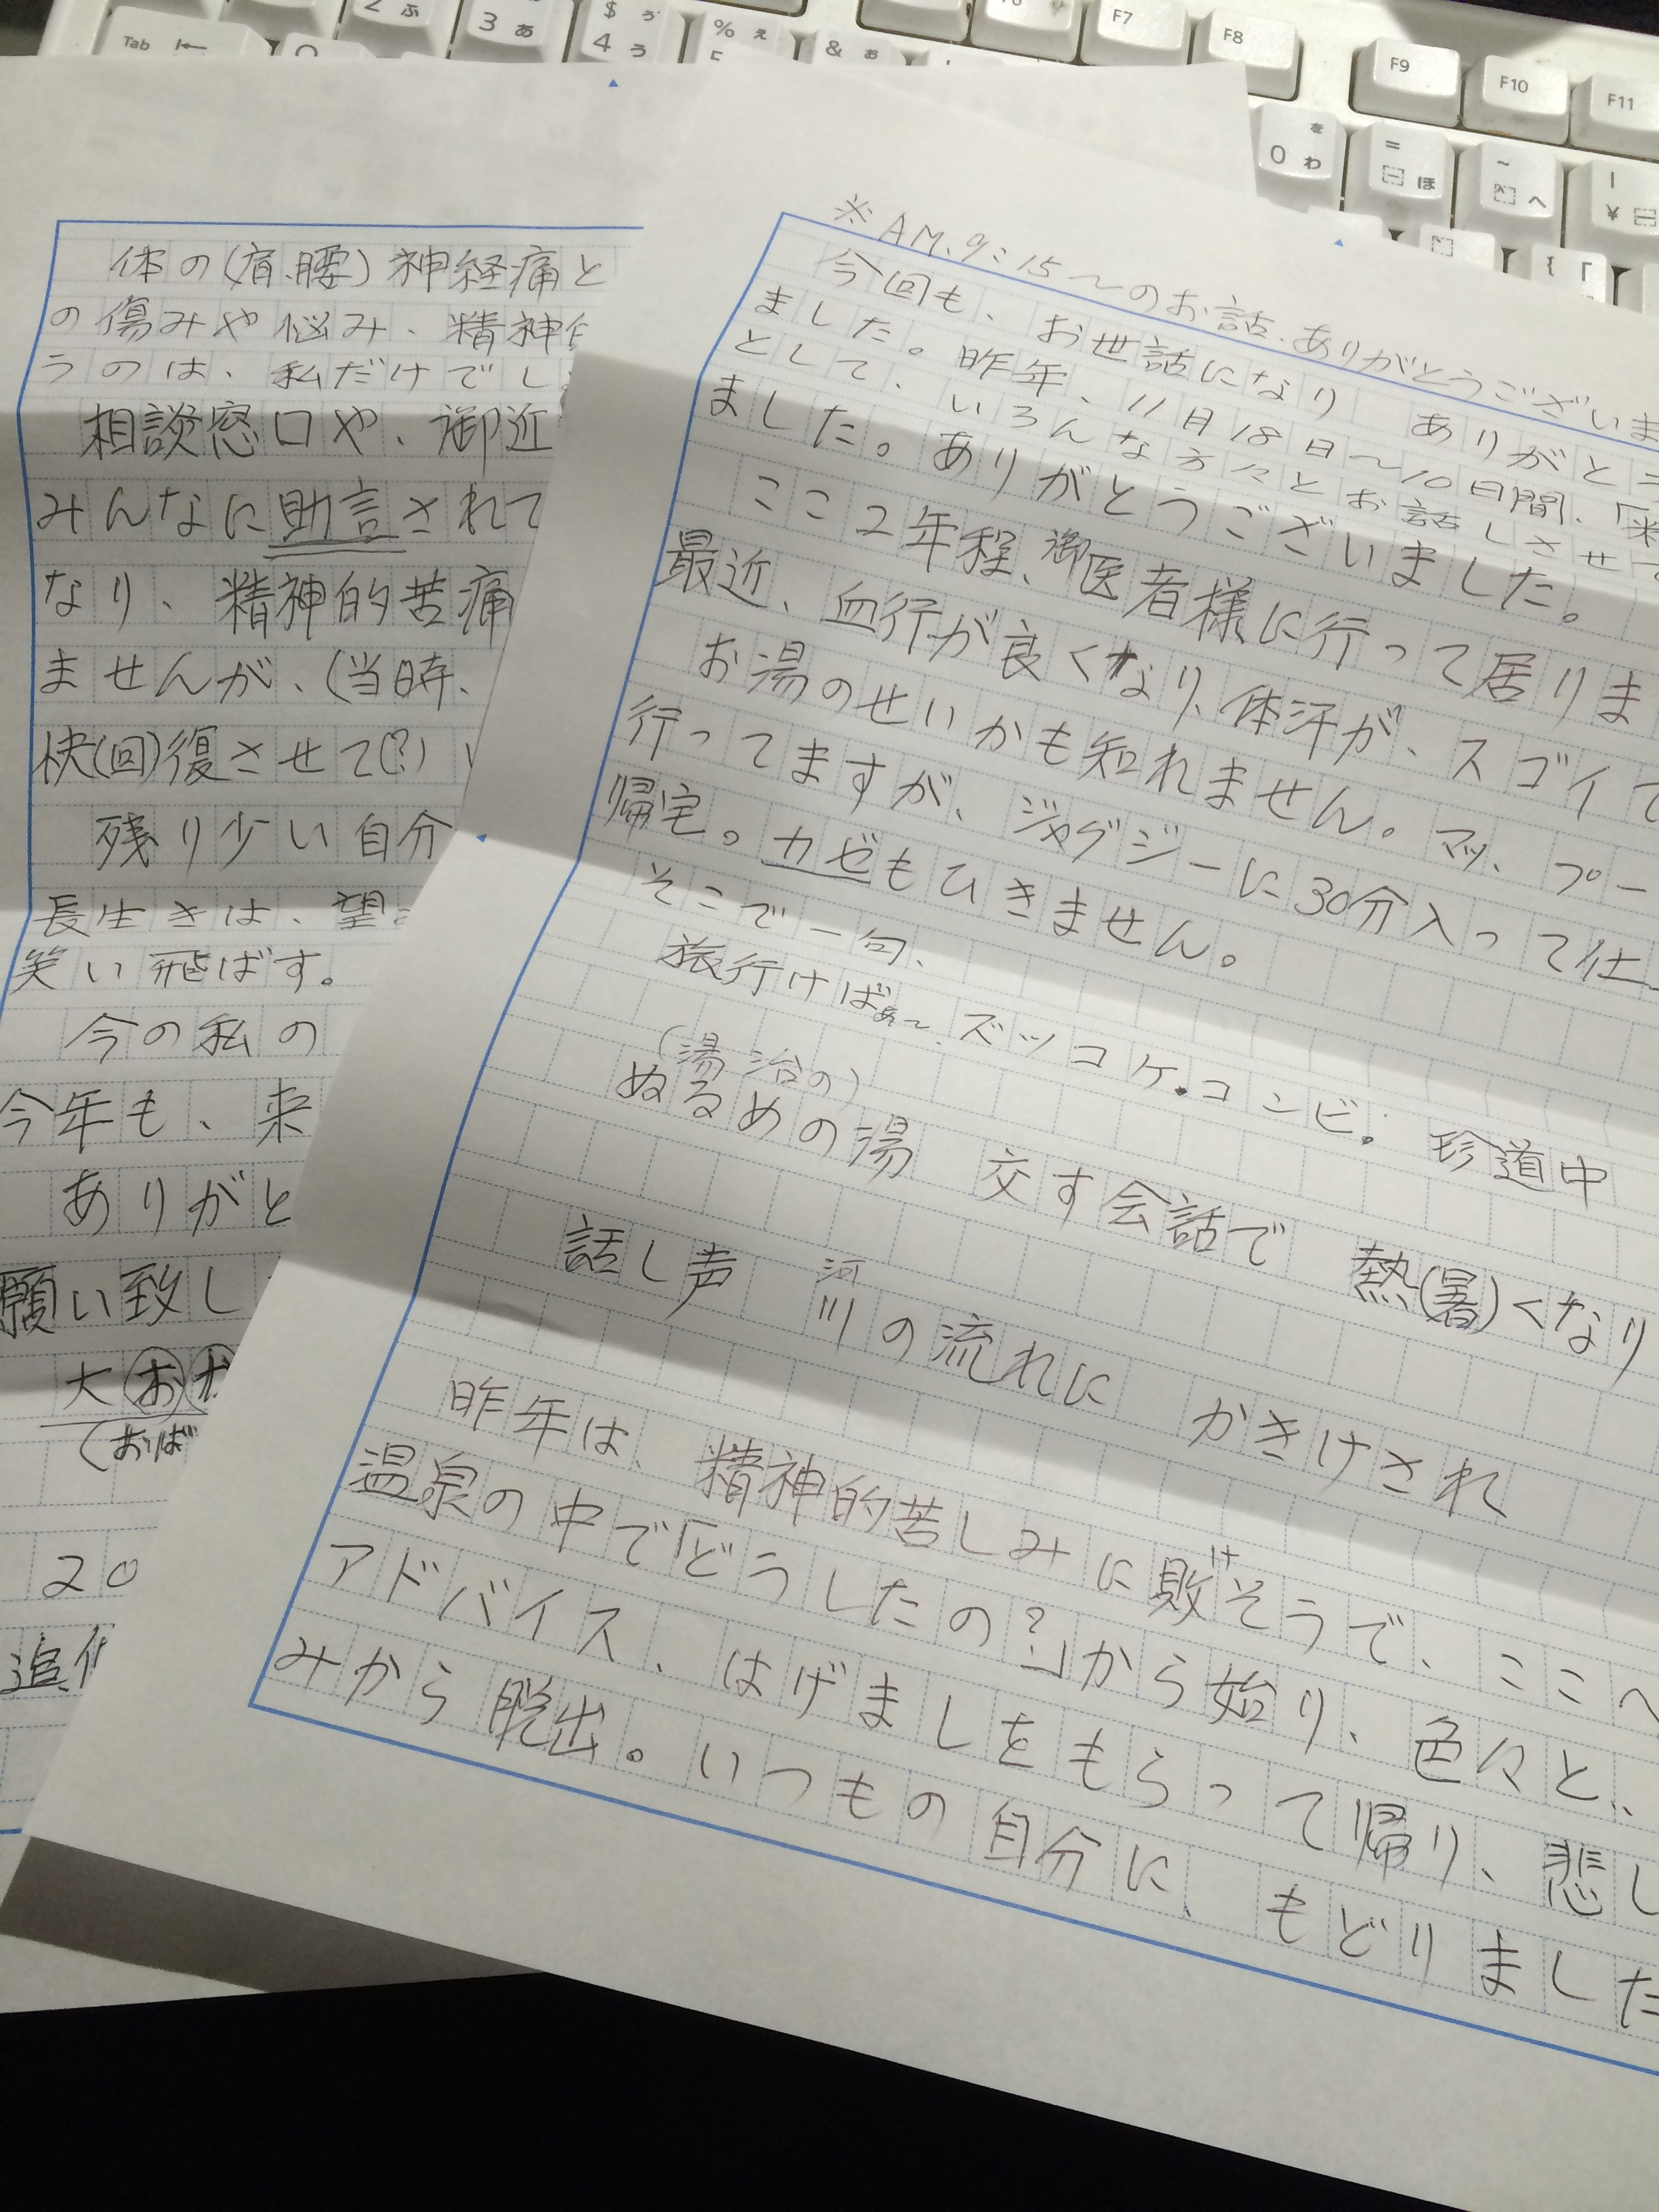 Tab
2 ふ
3 あ
$ ぅ
4 う
% ぇ
5
& ぉ
F7
F8
F9
F10
F11
を
0 わ
=
ほ
~
へ
|
¥
{
「
体の(肩、腰)神経痛と
の傷みや悩み、精神
うのは、私だけでし
相談窓口や、御近
みんなに助言されて
なり、精神的苦痛
ませんが、(当時、
快(回)復させて(?)
残り少い自分
長生きは、望
笑い飛ばす。
今の私の
今年も、来
ありがと
願い致し
大お
(おば
20
追
※AM.9:15〜のお話、ありがとうございま
今回も、お世話になり ありがとう
ました。昨年、11月18日〜10日間、「
として、いろんな方々とお話しさせて
ました。ありがとうございました。
ここ2年程、御医者様に行って居りま
最近、血行が良くなり、体汗が、スゴイで
お湯のせいかも知れません。マッ、プー
行ってますが、ジャグジーに30分入って仕
帰宅。カゼもひきません。
そこで一句、
旅行けばぁ〜、ズッコケ.コンビ. 珍道中
(湯治の)
ぬるめの湯 交す会話で 熱(暑)くなり
話し声 河川の流れに かきけされ
昨年は、精神的苦しみに敗けそうで、ここへ
温泉の中で「どうしたの?」から始り、色々と、
アドバイス、はげましをもらって帰り、悲し
みから脱出。いつもの自分に、もどりました